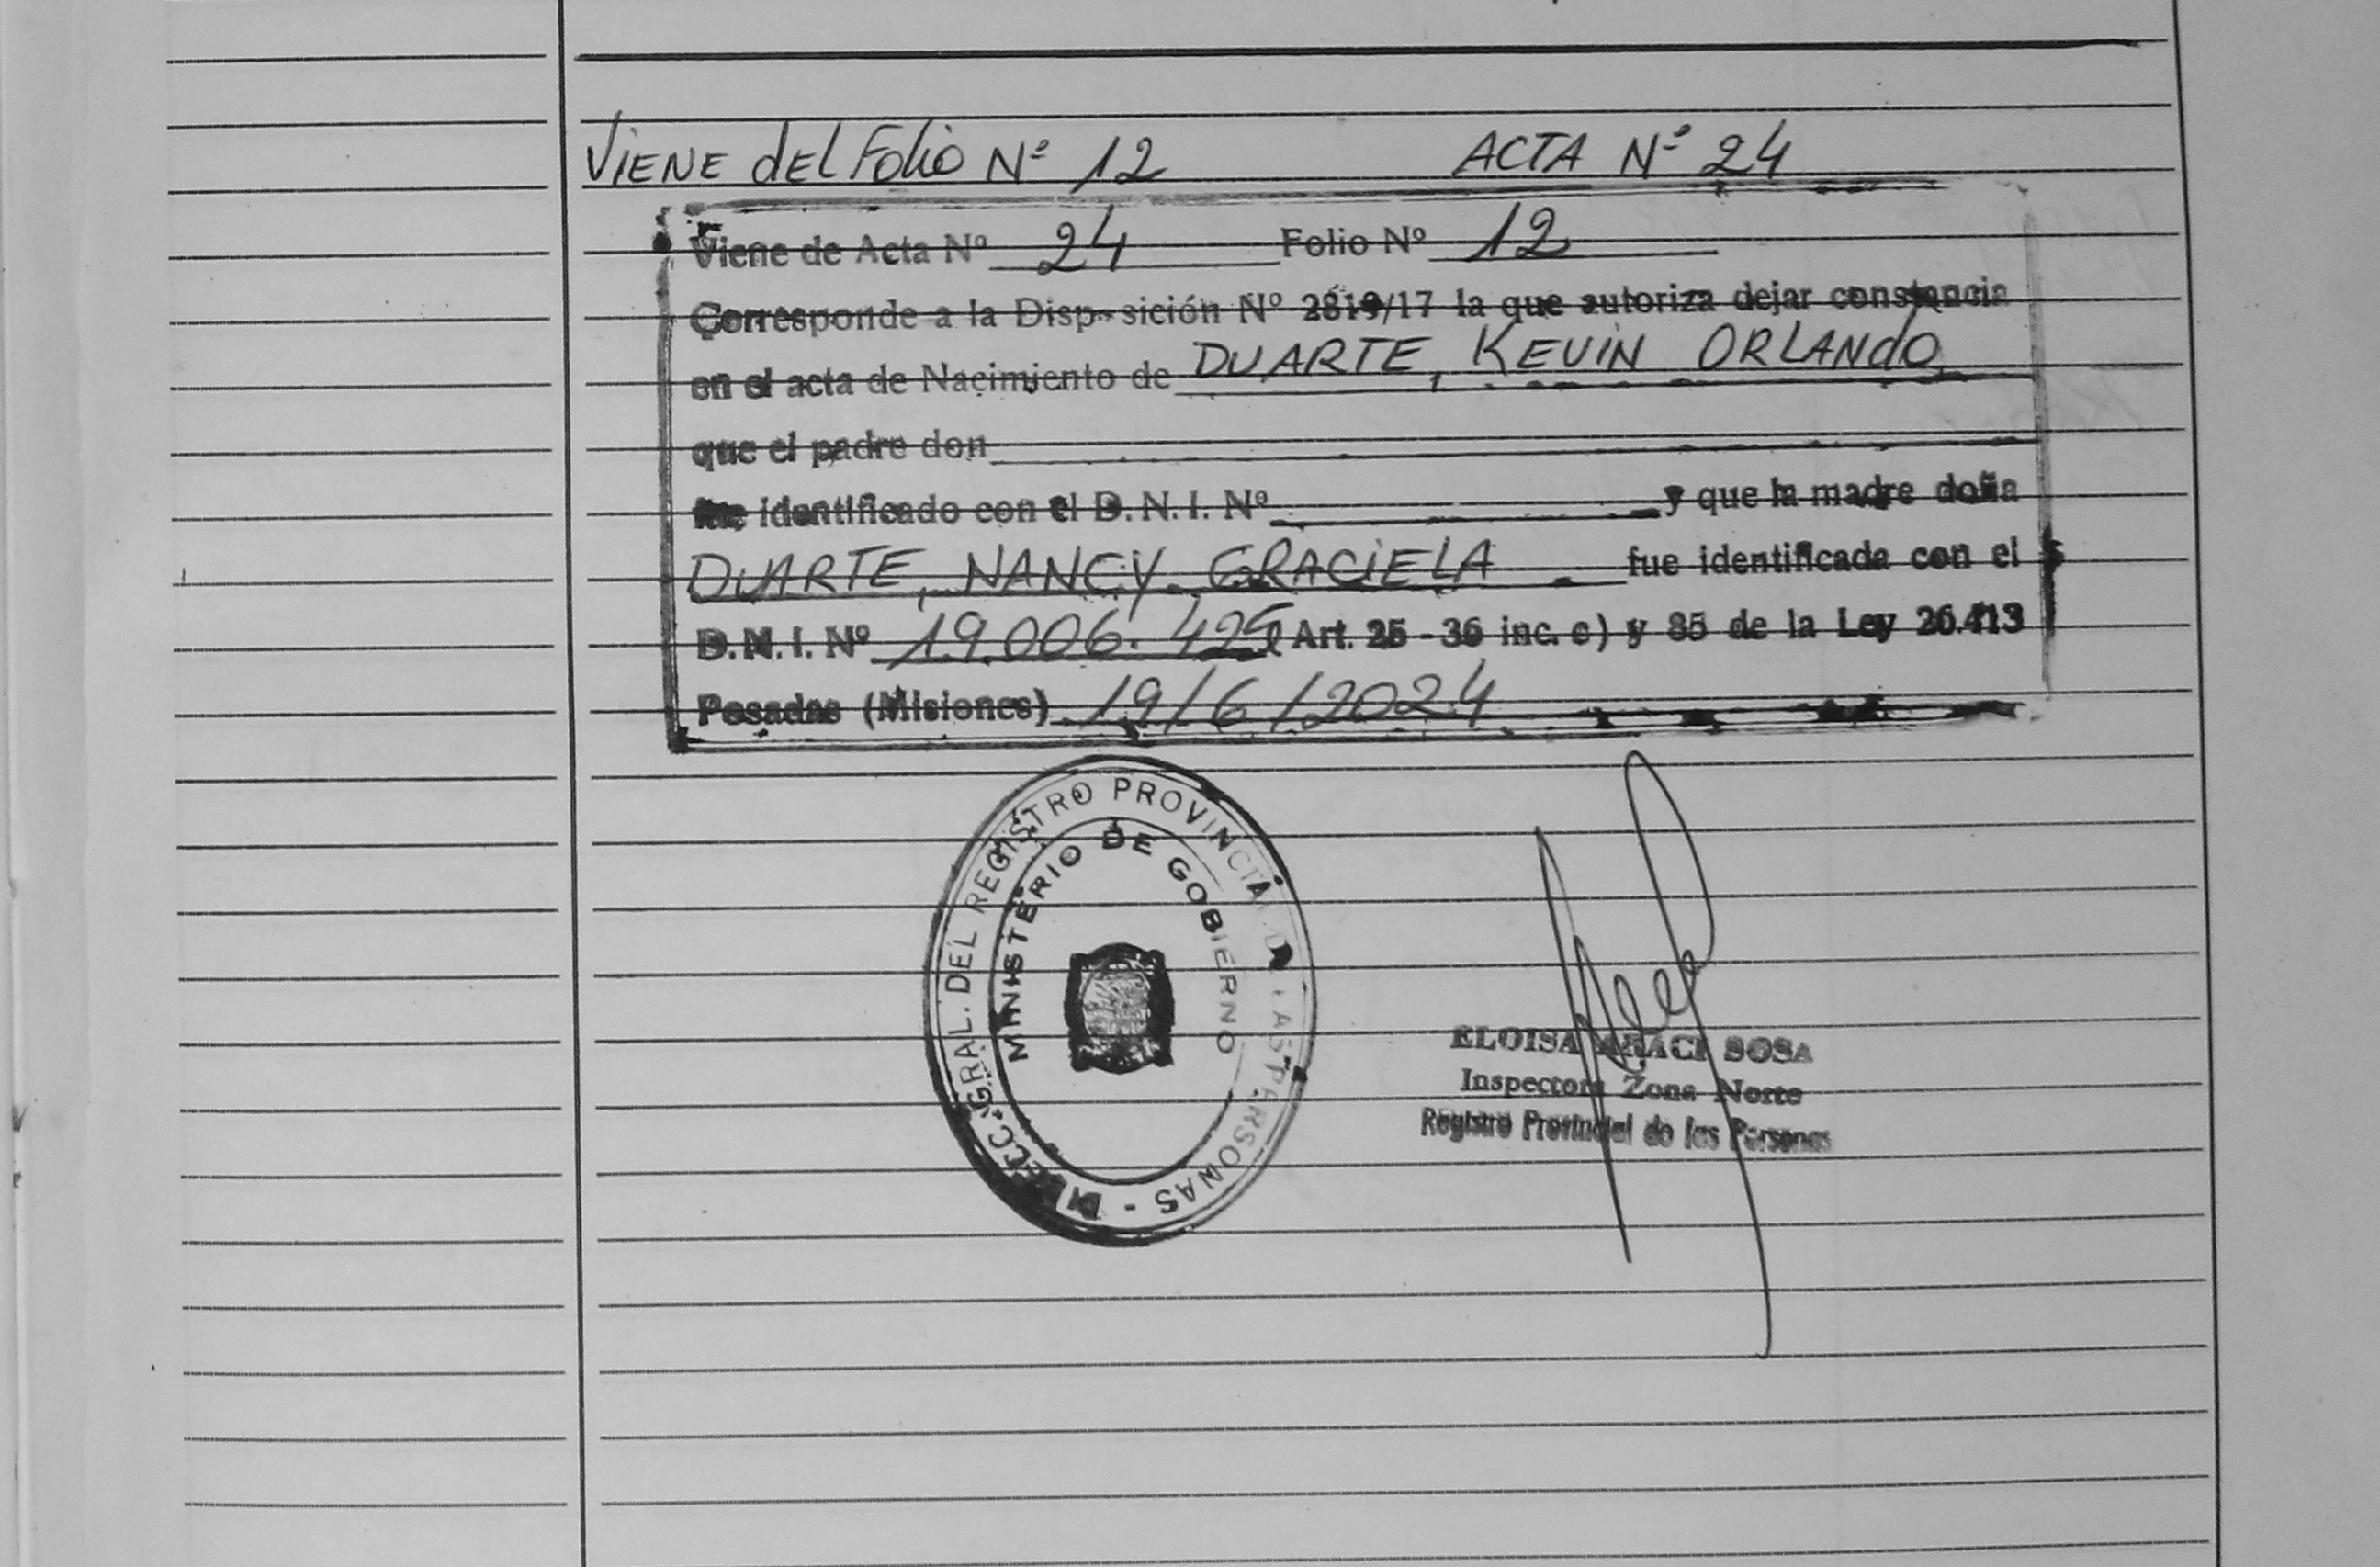 VIENE dEL Folio Nº 12 ACTA Nº 24
Viene de Acta Nº 24 Folio Nº 12
Corresponde a la Disposición Nº 2819/17 la que autoriza dejar constancia
en el acta de Nacimiento de DUARTE, KEVIN ORLANdO
que el padre don
fue identificado con el D.N.I. Nº y que la madre doña
DUARTE, NANCY GRACIELA fue identificada con el
D.N.I. Nº 19.006.425 (Art. 25 - 36 inc. c) y 85 de la Ley 26.413
Posadas (Misiones) 19/6/2024
DIRECC. GRAL. DEL REGISTRO PROVINCIAL DE LAS PERSONAS -
MINISTERIO DE GOBIERNO
ELOISA ARACI SOSA
Inspectora Zona Norte
Registro Provincial de las Personas